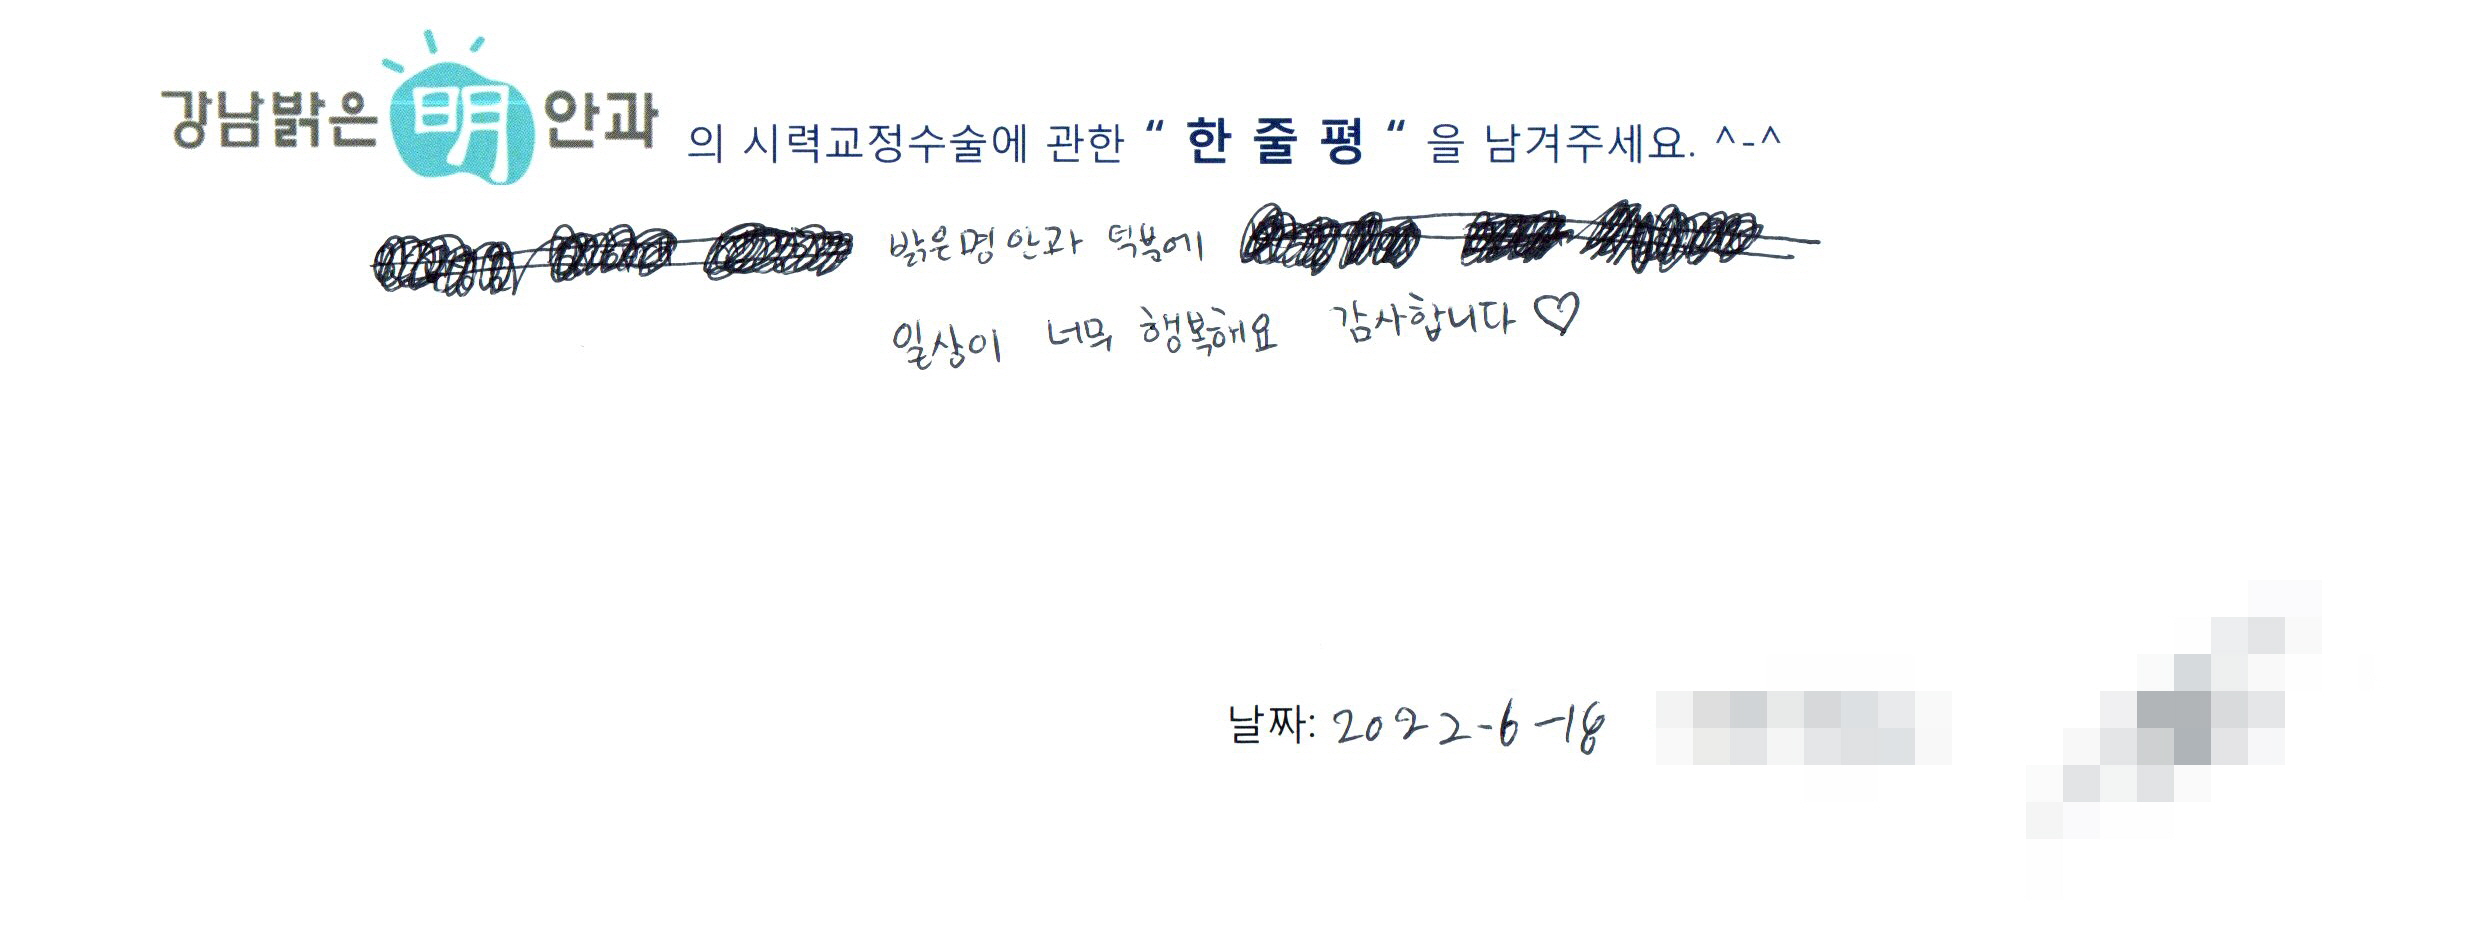 강남밝은明안과 의 시력교정수술에 관한 “ 한 줄 평 “ 을 남겨주세요. ^-^
밝은명안과 덕분에
일상이 너무 행복해요 감사합니다♡
날짜: 2022-6-18